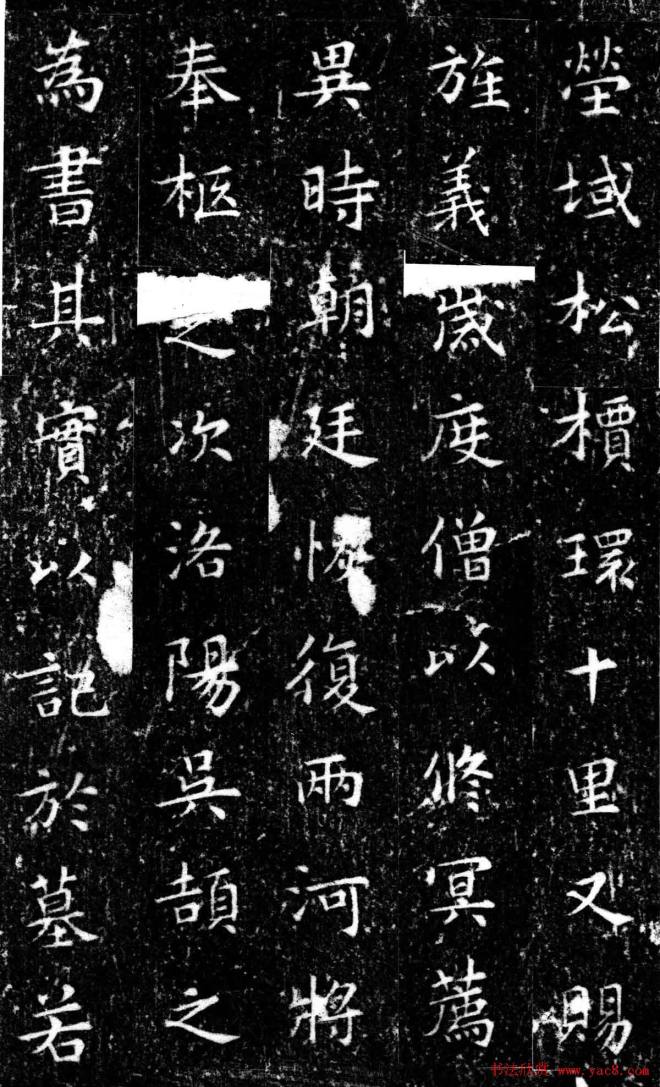 塋域松檟環十里又賜
旌義歲度僧以修冥薦
異時朝廷恢復兩河將
奉柩之次洛陽吳頡之
為書其實以記於墓若
书法欣赏 www.yac8.com